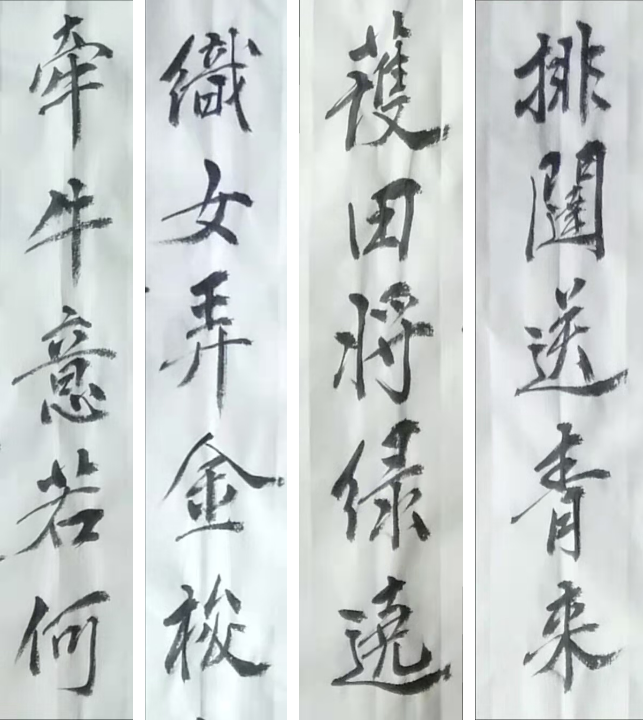 牽牛意若何
織女弄金梭
護田將綠遶
排闥送青來